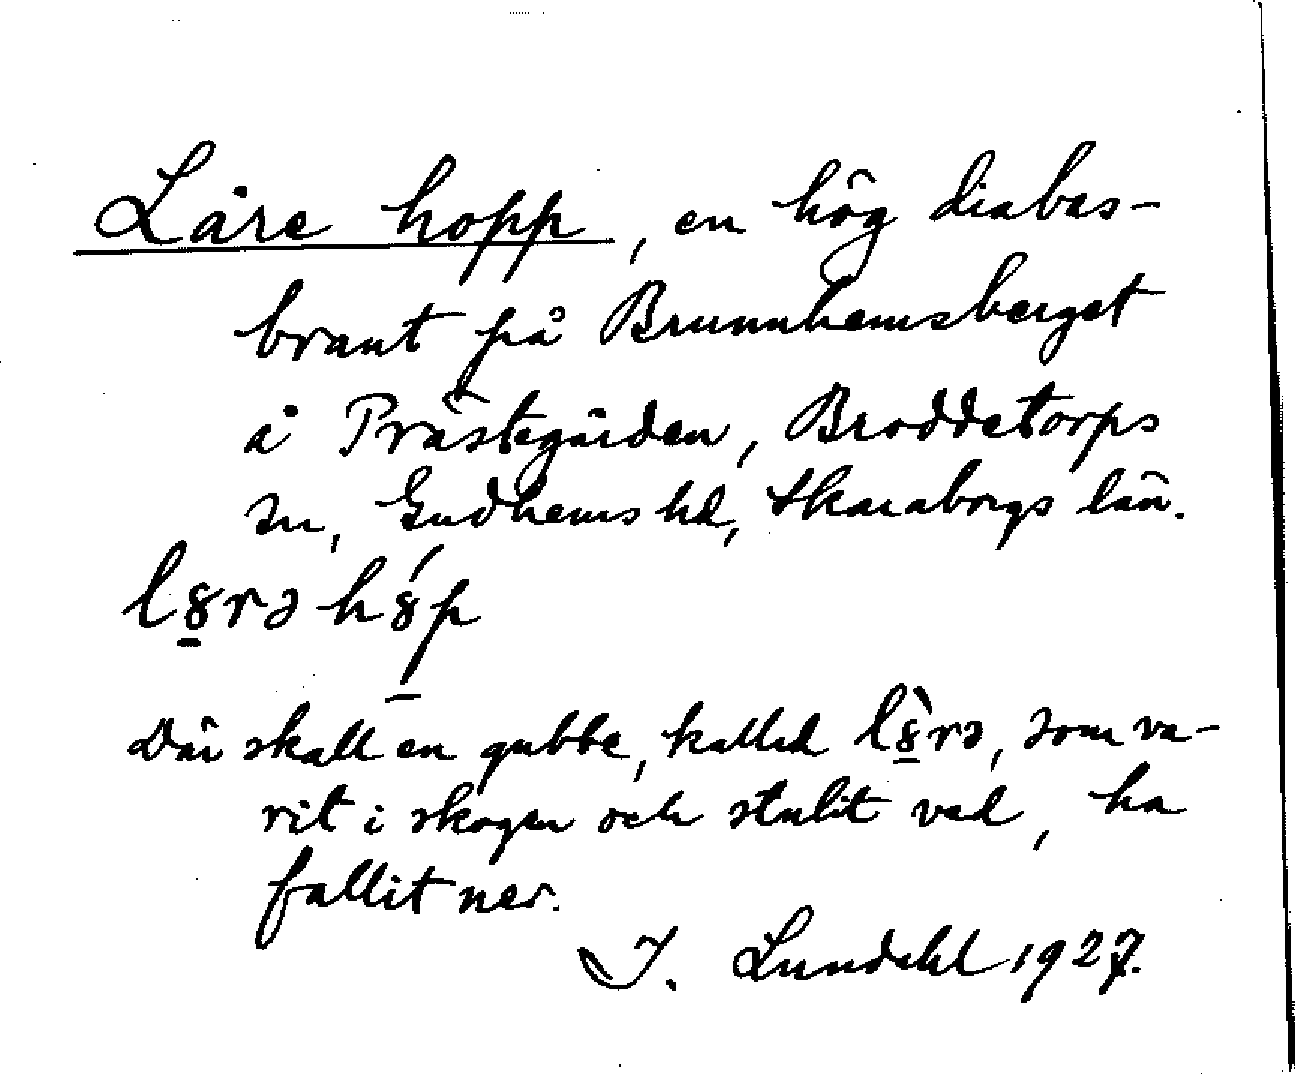 Låre hopp, en hög diabas-
brant på Brunnhemsberget
å Prästegården, Broddetorps
sn, Gudhems hd, Skaraborgs län.
l8̱rə h8́p̱
Där skall en gubbe, kallad l8̱̀rə, som va-
rit i skogen och stulit ved, ha
fallit ner.
I. Lundahl 1927.